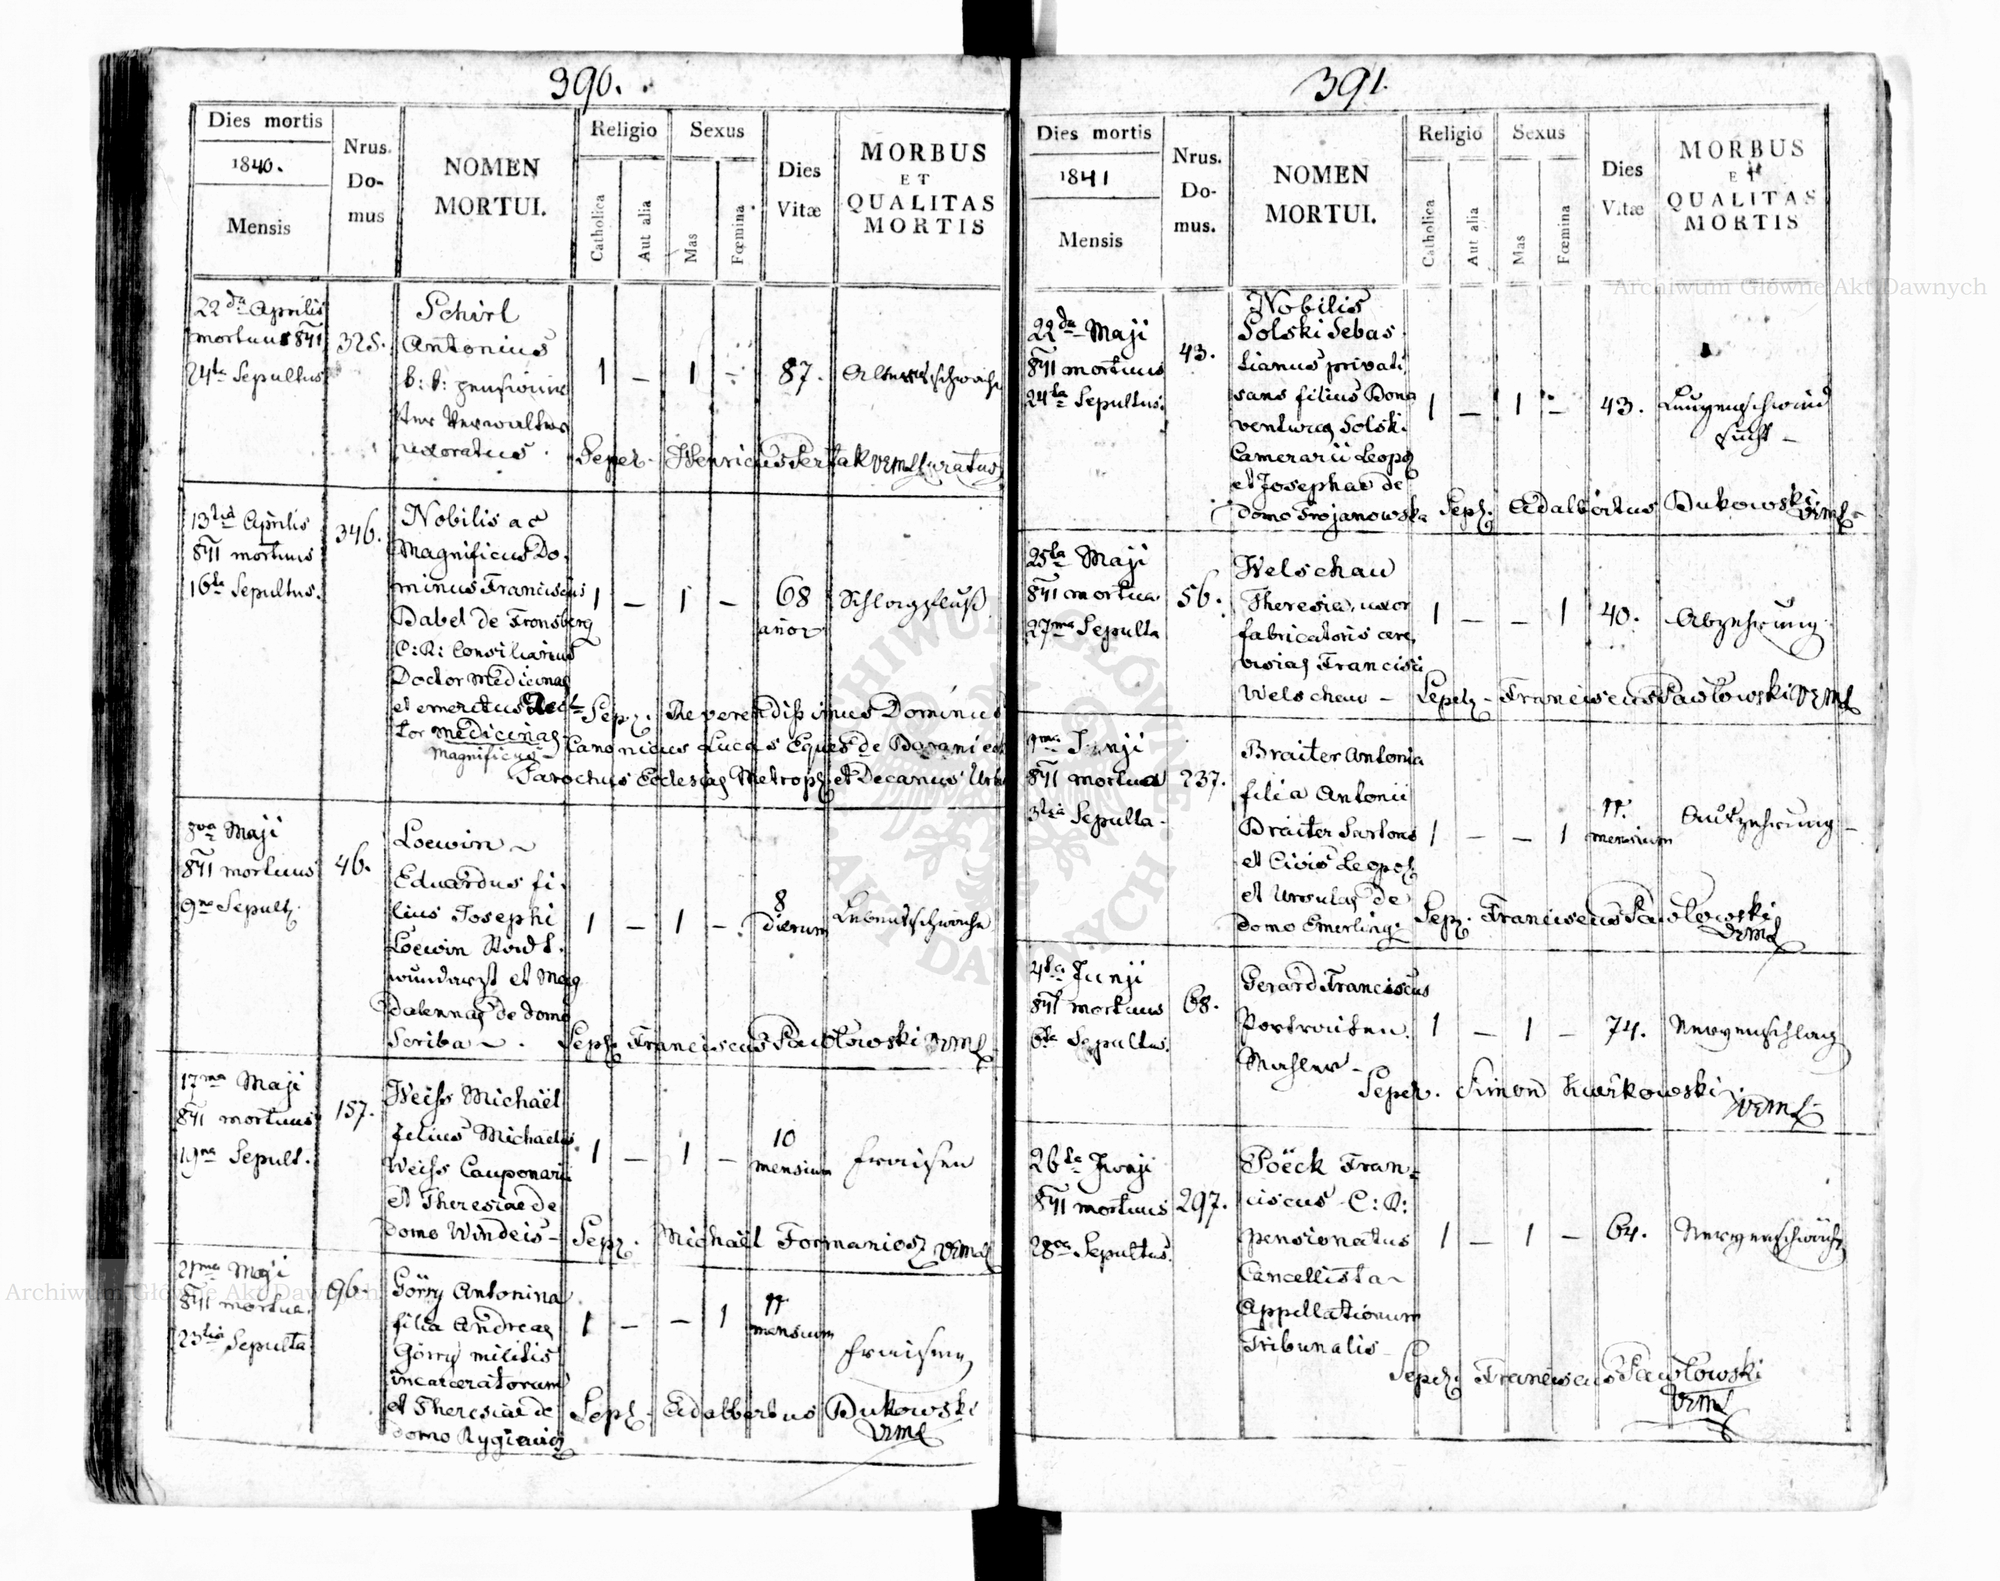 390.
Dies mortis
1840.
Mensis
Nrus.
Do-
mus
NOMEN
MORTUI.
Religio
Catholica
Aut alia
Sexus
Mas
Fœmina
Dies
Vitæ
MORBUS
ET
QUALITAS
MORTIS
22da Aprilis
mortuus 841
24ta Sepultus
325.
Schirl
Antonius
k: k: pensionir
ter Verwalter
uxoratus.
1 — 1 —
87.
Altersschwäche
Sepel. Henricus
Curatus
13tia Aprilis
841 mortuus
16ta Sepultus.
346.
Nobilis ac
Magnificus Do.
minus Franciscus
Babel de Fronsberg
C: R: Consiliarius
Doctor Medicinae
et emeritus Rec
tor medicinae
Magnificus
1 — 1 —
68
Schlagfluß
Sepel. Reverendissimus Dominus
Canonicus Lucas Eques de
Parochus Ecclesiae Metropol et Decanus Urb
8va Maji
841 mortuus
9na Sepult.
46.
Loewin
Eduardus fi.
lius Josephi
Loewin Stadt.
wundarzt et Mag
dalennae de domo
Scriba
1 — 1 —
8
dierum
Lebensschwäche
Sepel. Franciscus Pawłowski
17ma Maji
841 mortuus
19na Sepult.
157.
Weiss Michaël
filius Michaelis
Weiss Cauponarii
et Theresiae de
domo Windeis
1 — 1 —
10
mensium
Fraisen
Sepel. Michaël Formaniosz
21ma Maji
841 mortua
23tia Sepulta
96.
Görry Antonina
filia Andreae
Görry militis
incarceratorum
et Theresiae de
domo Rygiewicz
1 — — 1
11
mensium
Fraisen
Sepel. Adalbertus Dukowski
391.
Dies mortis
1841
Mensis
Nrus.
Do-
mus.
NOMEN
MORTUI.
Religio
Catholica
Aut alia
Sexus
Mas
Fœmina
Dies
Vitæ
MORBUS
ET
QUALITAS
MORTIS
22da Maji
841 mortuus
24ta Sepultus.
43.
Nobilis
Solski Sebas
tianus privati
sans filius Bona
venturae Solski
Camerarii Leopol
et Josephae de
domo Trojanowska
1 — 1 —
43.
Lungenschwind
sucht
Sepel. Adalbertus Dukowski
25ta Maji
841 mortua
27ma Sepulta
56.
Welschau
Theresia, uxor
fabricatoris cere
visiae Francisci
Welschau
1 — — 1
40.
Abzehrung
Sepel. Franciscus Pawłowski
1ma Junji
841 mortua
3tia Sepulta
237.
Braiter Antonia
filia Antonii
Braiter Sartoris
et Civis Leopol
et Ursulae de
domo Emerling
1 — — 1
11.
mensium
Auszehrung
Sepel. Franciscus Pawłowski
4ta Junji
841 mortuus
6ta Sepultus.
68.
Gerard Franciscus
Portraiten
Mahler
1 — 1 —
74.
Nervenschlag
Sepel. Simon Kwikowski
26ta Junji
841 mortuus
28va Sepultus.
297.
Poëck Fran
ciscus C: R:
pensionatus
Cancellista
Appellationum
Tribunalis
1 — 1 —
64.
Nervenschwäche
Sepel. Franciscus Pawłowski
Archiwum Główne Akt Dawnych
Archiwum Główne Akt Dawnych
ARCHIWUM GŁÓWNE
AKT DAWNYCH